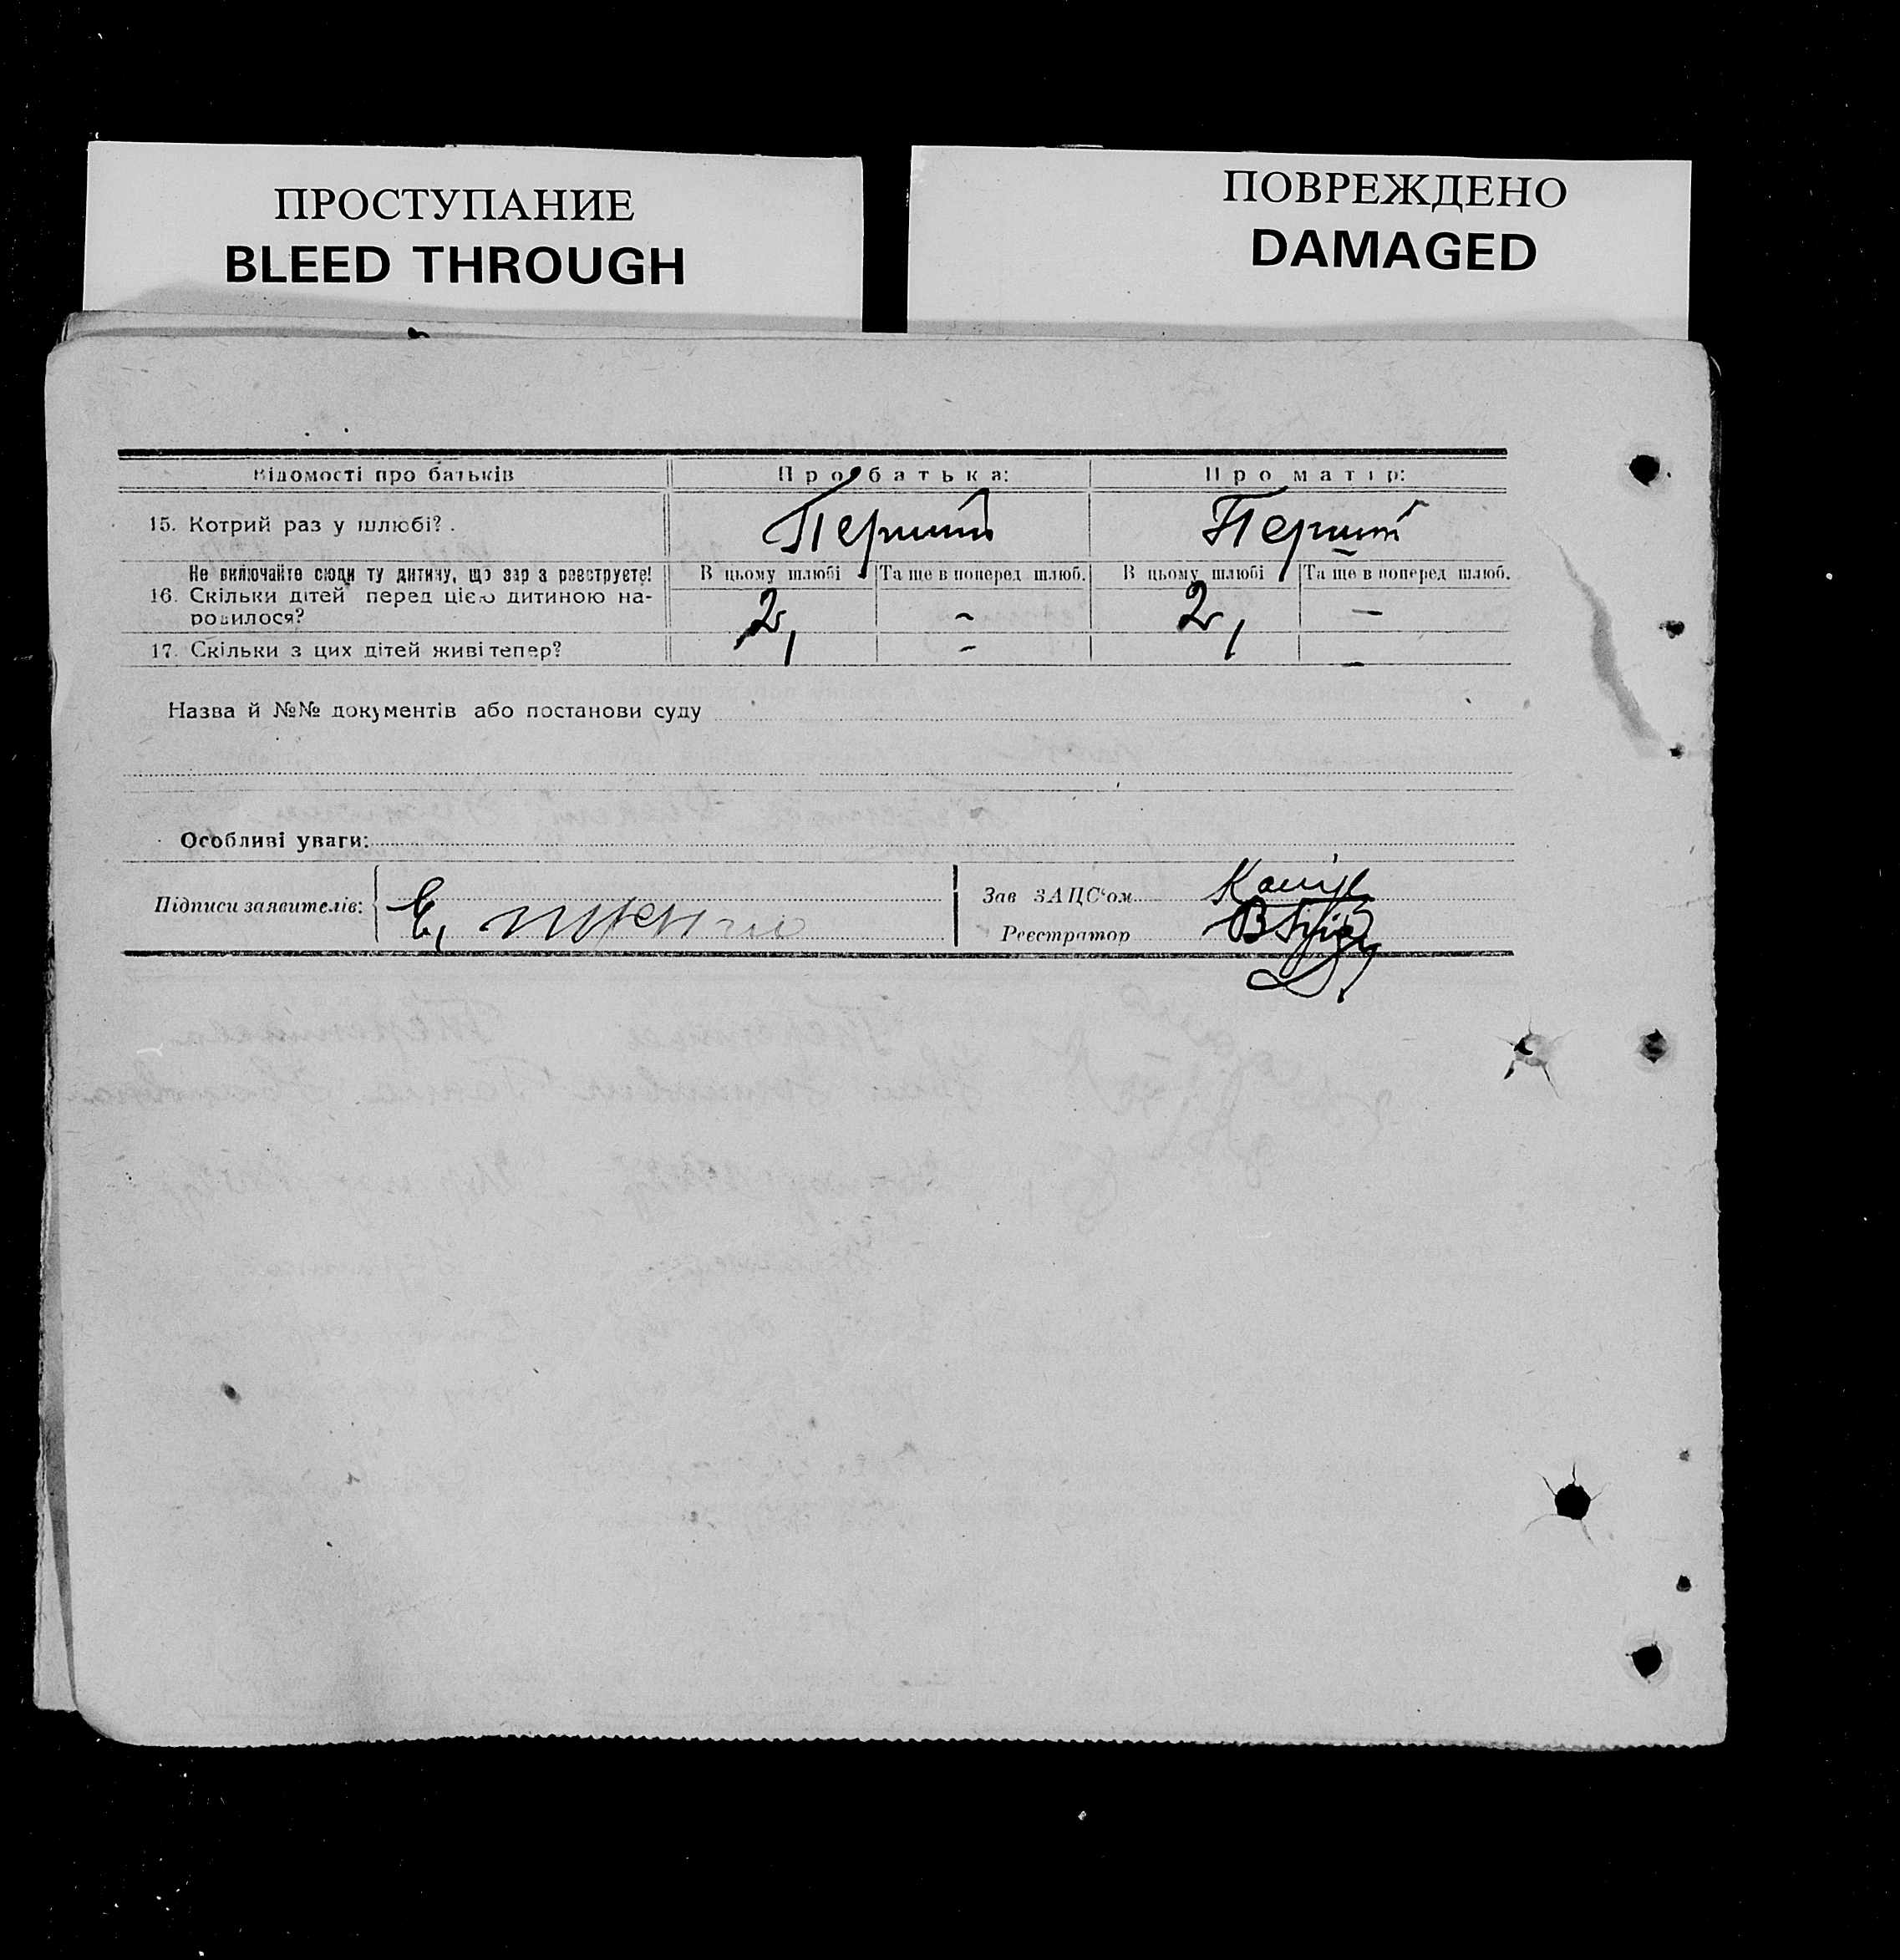 ПРОСТУПАНИЕ
BLEED THROUGH
ПОВРЕЖДЕНО
DAMAGED
Відомості про батьків
Про батька:
Про матір:
15. Котрий раз у шлюбі?
Перший
Перший
Не включайте сюди ту дитину, що зараз реєструєте!
16. Скільки дітей перед цією дитиною на-
родилося?
В цьому шлюбі
Та ще в поперед шлюб.
В цьому шлюбі
Та ще в поперед шлюб.
2,
-
2,
-
17. Скільки з цих дітей живі тепер?
-
-
Назва й №№ документів або постанови суду
Особливі уваги:
Підписи заявителів:
Зав ЗАЦС'ом
Реєстратор